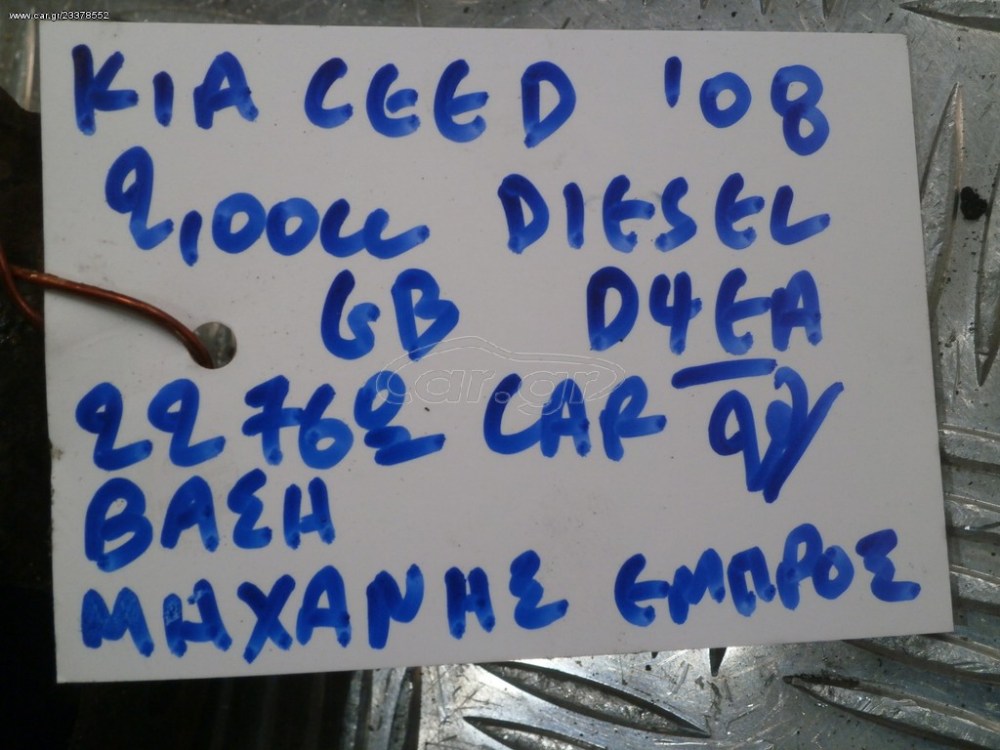 www.car.gr/23378552
KIA CEED '08
2,00cc DIESEL
GB D4EA
car.gr
22762 CAR
ΒΑΣΗ
ΜΗΧΑΝΗΣ ΕΜΠΡΟΣ